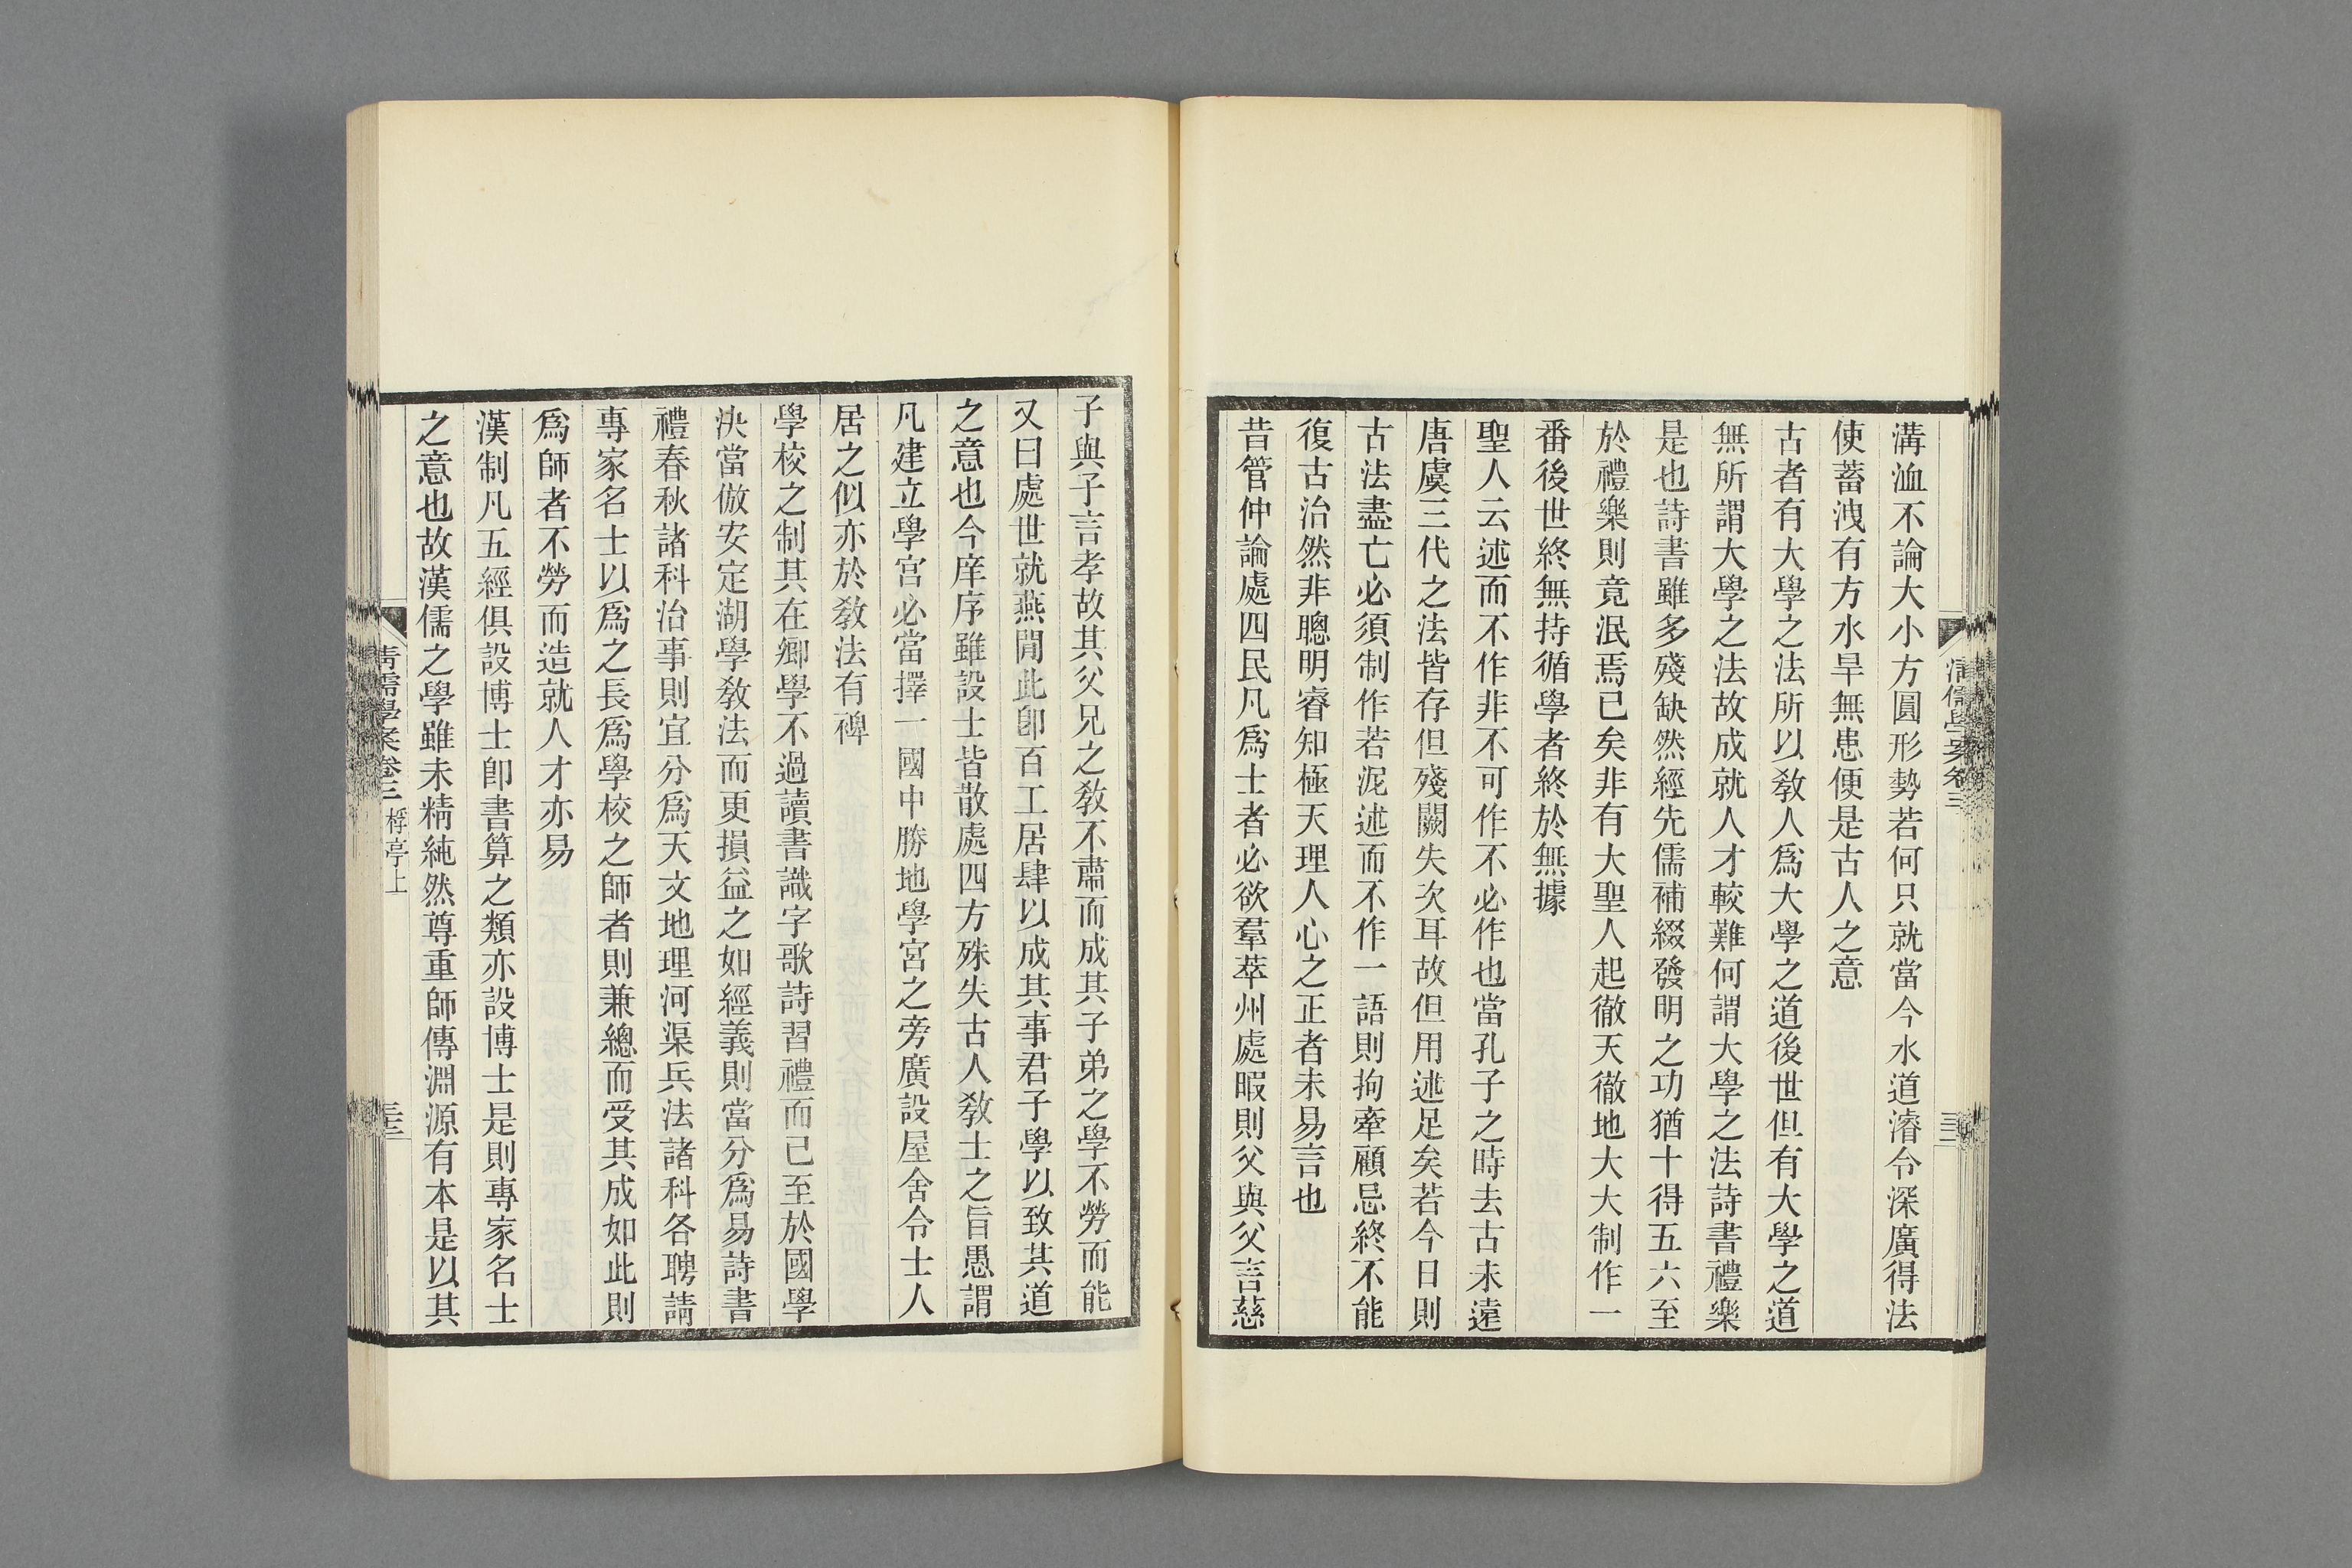 溝洫不論大小方圓形勢若何只就當今水道濬令深廣得法
使蓄洩有方水旱無患便是古人之意
古者有大學之法所以敎人爲大學之道後世但有大學之道
無所謂大學之法故成就人才較難何謂大學之法詩書禮樂
是也詩書雖多殘缺然經先儒補綴發明之功猶十得五六至
於禮樂則竟泯焉已矣非有大聖人起徹天徹地大大制作一
番後世終無持循學者終於無據
聖人云述而不作非不可作不必作也當孔子之時去古未遠
唐虞三代之法皆存但殘闕失次耳故但用述足矣若今日則
古法盡亡必須制作若泥述而不作一語則拘牽顧忌終不能
復古治然非聰明睿知極天理人心之正者未易言也
昔管仲論處四民凡爲士者必欲羣萃州處暇則父與父言慈
清儒學案卷三
子與子言孝故其父兄之敎不肅而成其子弟之學不勞而能
又曰處世就燕閒此卽百工居肆以成其事君子學以致其道
之意也今庠序雖設士皆散處四方殊失古人敎士之旨愚謂
凡建立學宮必當擇一國中勝地學宮之旁廣設屋舍令士人
居之似亦於敎法有裨
學校之制其在鄕學不過讀書識字歌詩習禮而已至於國學
決當倣安定湖學敎法而更損益之如經義則當分爲易詩書
禮春秋諸科治事則宜分爲天文地理河渠兵法諸科各聘請
專家名士以爲之長爲學校之師者則兼總而受其成如此則
爲師者不勞而造就人才亦易
漢制凡五經俱設博士卽書算之類亦設博士是則專家名士
之意也故漢儒之學雖未精純然尊重師傳淵源有本是以其
清儒學案卷三 桴亭上